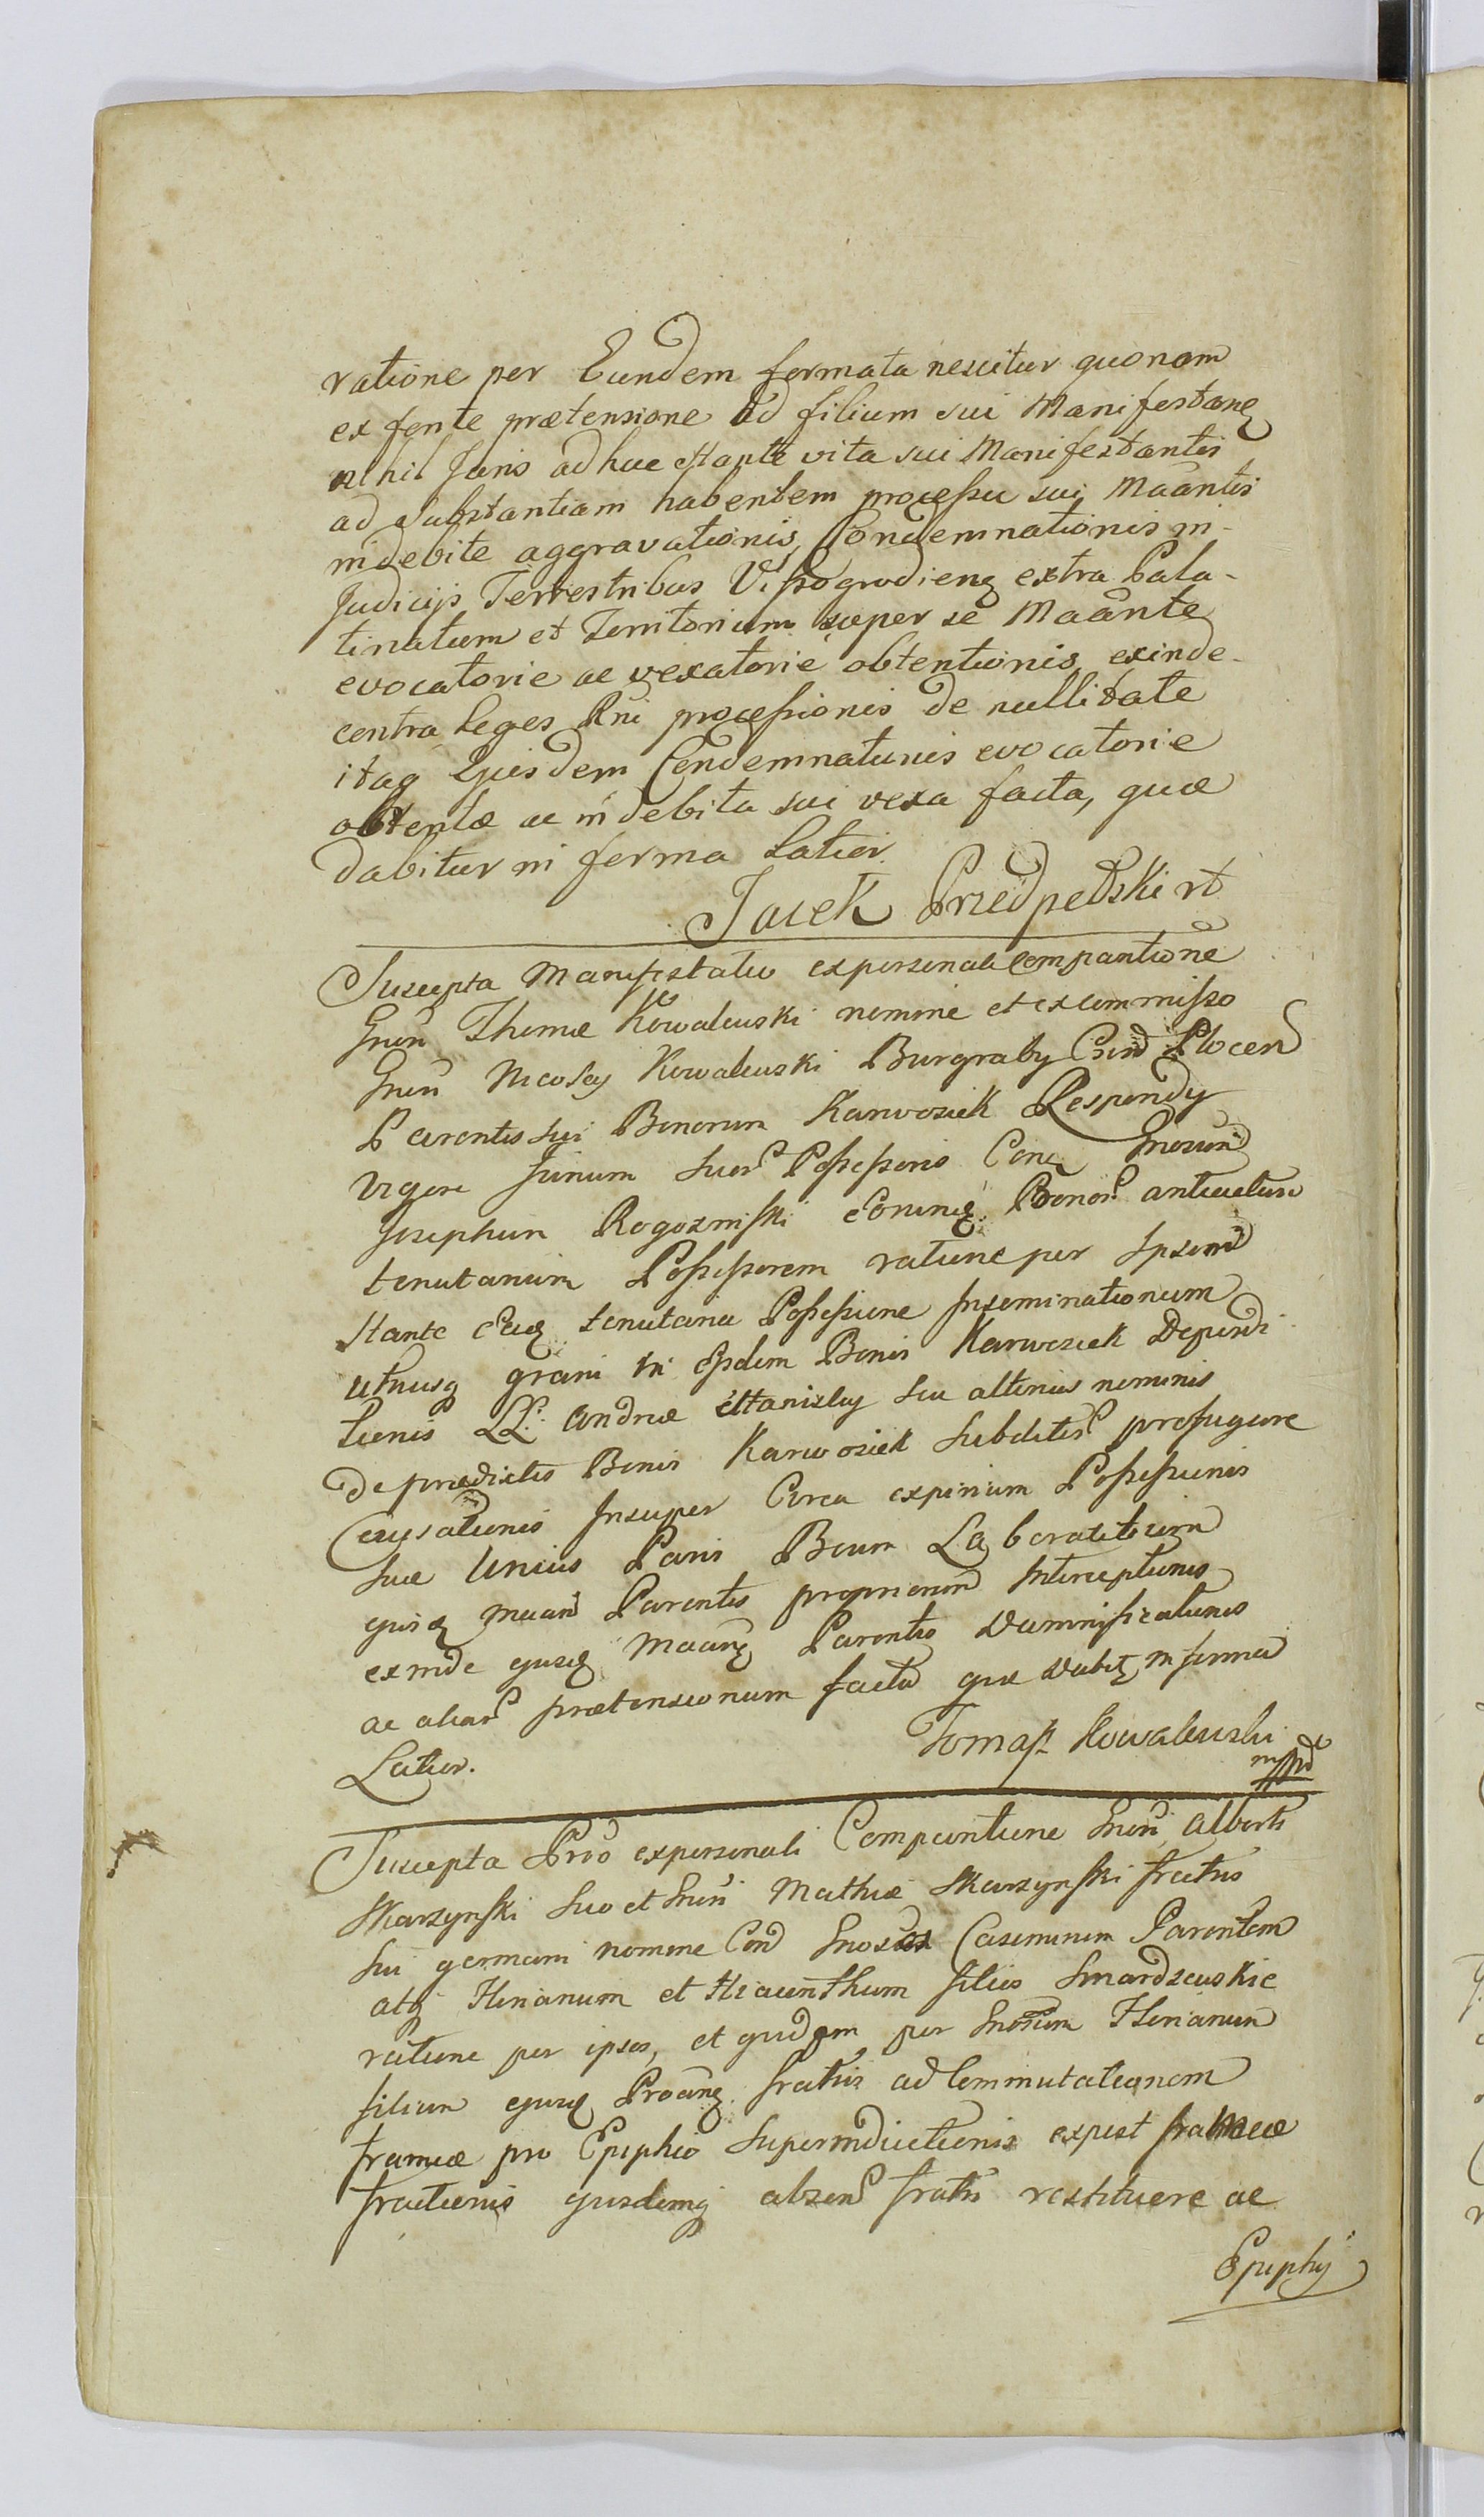 ratione per Eundem formata nescitur quonam
ex fonte prætensione ad filium sui Manifestanꝫ
nihil Juris adhuc stante vita sui Manifestantis
ad substantiam habentem processu sui Maãntis
indebite aggravationis, Condemnationis in-
Judicijs Terrestribus Vissogrodienꝫ extra Pala-
tinatum et Territorium super se Maãnte
evocatorie ac vexatorie obtentionis, exinde-
contra Leges Rni processionis de nullitate
itaq Ejusdem Condemnationis evocatorie
obtentæ ac indebita sui vexa facta, quæ
dabitur in forma Latior.
Jacek Przedpełski rt
Suscepta Manifestatio ex personali Comparitione
Gnosi Thomæ Kowalewski nomine et ex commisso
Gnosi Nicolay Kowalewski Burgraby Plocen
Parentis sui Bonorum Karwosiek
vigore Jurium suor Possessoris Conꝫ Gnosum
Josephum Rogozinski eorumꝫ Bonor antecedture
tenutarium Possessorem ratione per Ipsum
stante Eaꝫ tenutaria Possessione Inseminationum
utriusq grani in Eisdem Bonis Karwosiek
tionis LL. Andreæ Stanislay seu alterius nominis
de prædictis Bonis Karwosiek subditor profugere
Causationis Insuper Circa expirium Possessionis
suæ Unius Paris Boum Laboratitium
ejusꝫ Parentis propriorum Interceptionis
exinde ejusꝫ Maanꝫ Parentis Damnificationis
ac aliar prætensionum facta quæ dabitꝫ in forma
Latior.
Tomasz Kowalewski
mppa
Suscepta Pro ex personali Comparitione Gnosi Alberti
Skarzynski suo et Gnosi Mathiæ Skarzynski fratris
sui germani nomine Con Gnosos Casimirum Parentem
atq Florianum et Hiacinthum filios Smardzewskie
ratione per ipsos, et quidem per Gnosum Florianum
filium ejusꝫ Proanꝫ fratris ad Commutationem
frameæ pro Ephipio Superinductionis frameæ
fractionis ejusdemq absen fratri restituere ac
Epiphij